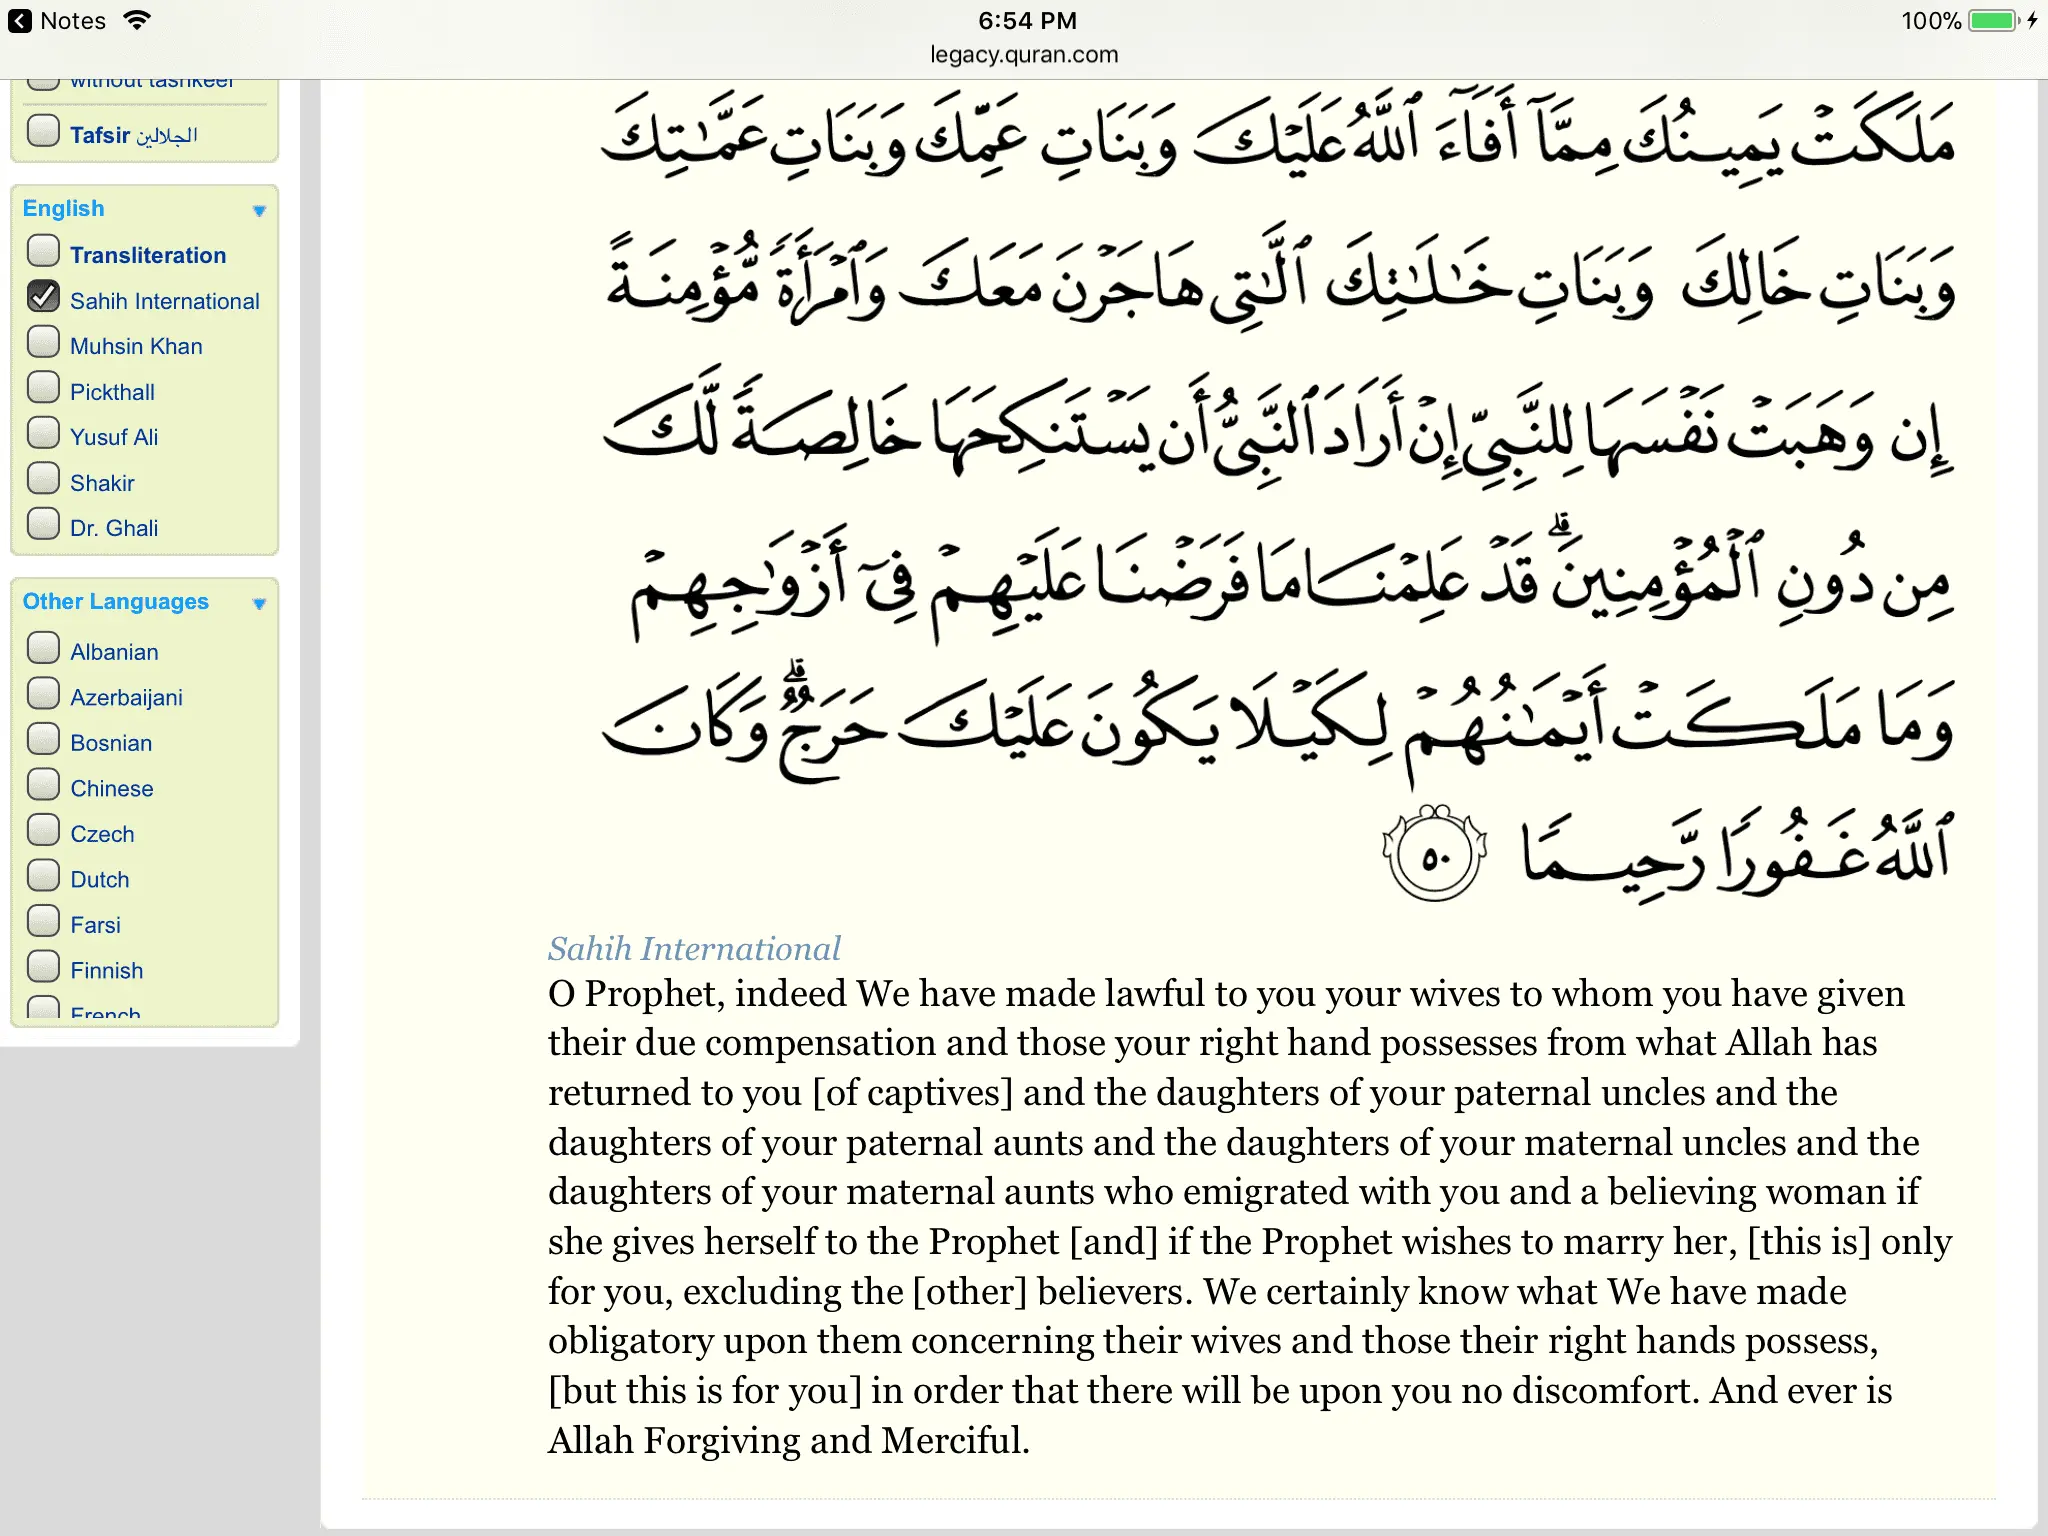 Notes
6:54 PM
100%
legacy.quran.com
without tashkeel
Tafsir الجلالين
English
Transliteration
Sahih International
Muhsin Khan
Pickthall
Yusuf Ali
Shakir
Dr. Ghali
Other Languages
Albanian
Azerbaijani
Bosnian
Chinese
Czech
Dutch
Farsi
Finnish
French
مَلَكَتْ يَمِينُكَ مِمَّآ أَفَآءَ ٱللَّهُ عَلَيْكَ وَبَنَاتِ عَمِّكَ وَبَنَاتِ عَمَّـٰتِكَ
وَبَنَاتِ خَالِكَ وَبَنَاتِ خَـٰلَـٰتِكَ ٱلَّـٰتِى هَاجَرْنَ مَعَكَ وَٱمْرَأَةً مُّؤْمِنَةً
إِن وَهَبَتْ نَفْسَهَا لِلنَّبِىِّ إِنْ أَرَادَ ٱلنَّبِىُّ أَن يَسْتَنكِحَهَا خَالِصَةً لَّكَ
مِن دُونِ ٱلْمُؤْمِنِينَ ۗ قَدْ عَلِمْنَا مَا فَرَضْنَا عَلَيْهِمْ فِىٓ أَزْوَٰجِهِمْ
وَمَا مَلَكَتْ أَيْمَـٰنُهُمْ لِكَيْلَا يَكُونَ عَلَيْكَ حَرَجٌ ۗ وَكَانَ
ٱللَّهُ غَفُورًا رَّحِيمًا ٥٠
Sahih International
O Prophet, indeed We have made lawful to you your wives to whom you have given
their due compensation and those your right hand possesses from what Allah has
returned to you [of captives] and the daughters of your paternal uncles and the
daughters of your paternal aunts and the daughters of your maternal uncles and the
daughters of your maternal aunts who emigrated with you and a believing woman if
she gives herself to the Prophet [and] if the Prophet wishes to marry her, [this is] only
for you, excluding the [other] believers. We certainly know what We have made
obligatory upon them concerning their wives and those their right hands possess,
[but this is for you] in order that there will be upon you no discomfort. And ever is
Allah Forgiving and Merciful.